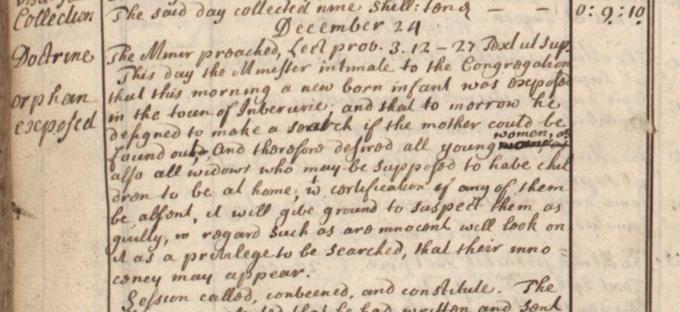 Collection
The said day collected nine shell: ten d — — 0:9:10
December 24
Doctrine
The Minr preached, Lect prov. 3. 12 - 27 Text ut sup.
This day the Minister intimate to the Congregation
orphan
exposed
that this morning a new born infant was exposed
in the town of Inverurie: and that to morrow he
designed to make a search if the mother could be
found out, And therefore desired all young women, as
also all widows who may be supposed to have chil
dren to be at home, wt certification if any of them
be absent, it will give ground to suspect them as
guilty, in regard such as are innocent will look on
it as a privilege to be searched, that their inno-
cency may appear.
Session called, conveened, and constitute. The
that he had written and sent